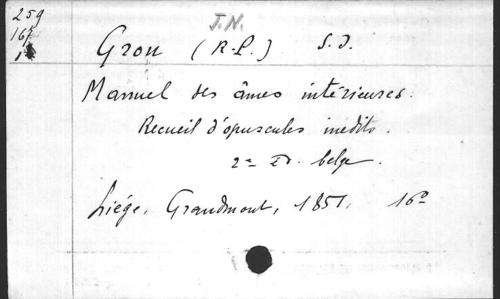 259
167
J. N.
Grou (R.-P.) S. J.
Manuel des âmes intérieures.
Recueil d'opuscules inédits.
2e Ed. belge.
Liége, Grandmont, 1851, 16o